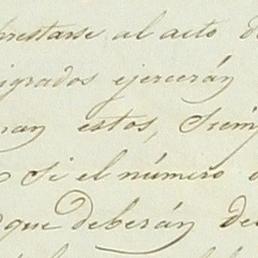 prestarse al acto d
igrados ejercerán
nan estos, siemp
si el número d
que deberán de